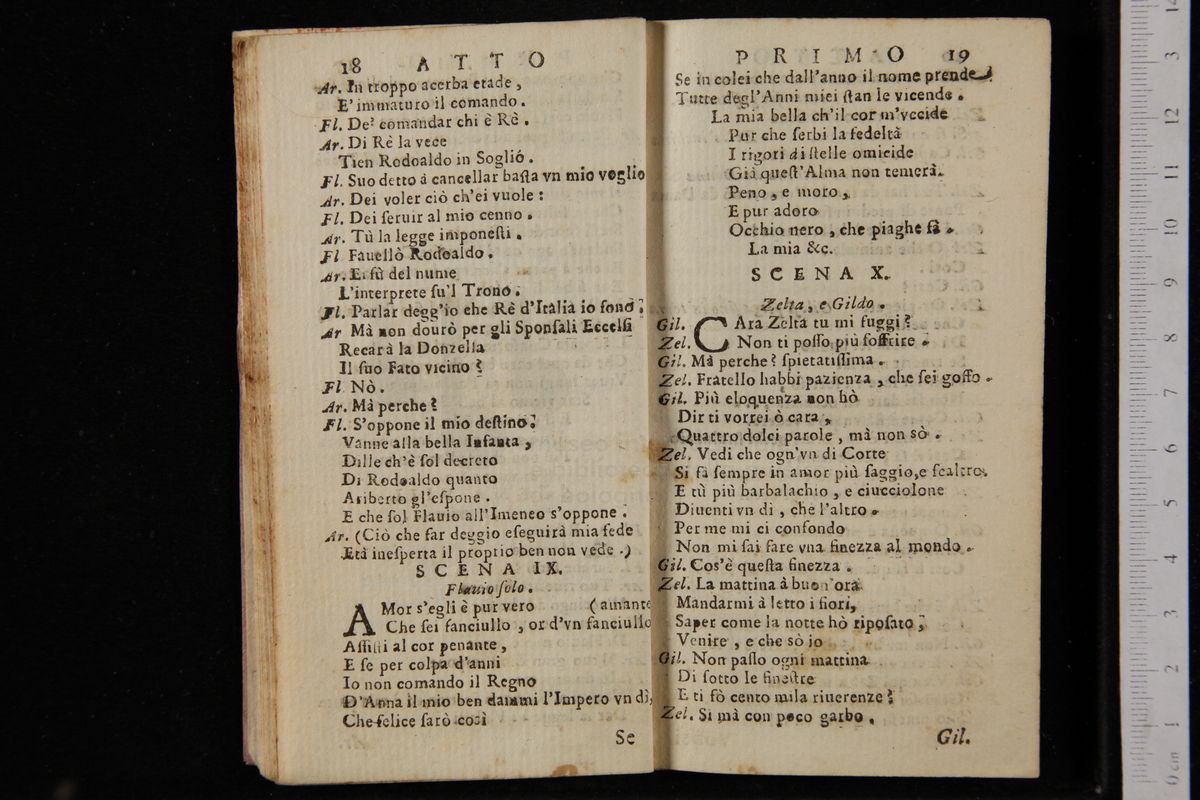 18 ATTO
Ar. In troppo acerba etade ,
E' immaturo il comando .
Fl. De' comandar chi è Rè .
Ar. Di Rè la vece
Tien Rodoaldo in Soglio .
Fl. Suo detto à cancellar baſta vn mio voglio
Ar. Dei voler ciò ch'ei vuole :
Fl. Dei ſeruir al mio cenno .
Ar. Tù la legge imponeſti .
Fl Fauellò Rodoaldo .
Ar. Ei fù del nume
L'interprete ſu'l Trono .
Fl. Parlar degg'io che Rè d'Italia io ſono ;
Ar Mà non dourò per gli Sponſali Eccelſi
Recar à la Donzella
Il ſuo Fato vicino ?
Fl. Nò .
Ar. Mà perche ?
Fl. S'oppone il mio deſtino ;
Vanne alla bella Infanta ,
Dille ch'è ſol decreto
Di Rodoaldo quanto
Ariberto gl'eſpone .
E che ſol Flauio all'Imeneo s'oppone .
Ar. (Ciò che far deggio eſeguirà mia fede
Età ineſperta il proprio ben non vede .)
SCENA IX.
Flauio ſolo .
AMor s'egli è pur vero ( amante
Che ſei fanciullo , or d'vn fanciullo
Aſſiſti al cor penante ,
E ſe per colpa d'anni
Io non comando il Regno
D'Anna il mio ben dammi l'Impero vn dì,
Che felice ſarò così
Se
PRIMO 19
Se in colei che dall'anno il nome prende
Tutte degl'Anni miei ſtan le vicende .
La mia bella ch'il cor m'vccide
Pur che ſerbi la fedeltà
I rigori di ſtelle omicide
Già queſt'Alma non temerà.
Peno , e moro ,
E pur adoro
Occhio nero , che piaghe fà .
La mia &c.
SCENA X.
Zelta , e Gildo .
Gil. CAra Zelta tu mi fuggi ?
Zel. Non ti poſſo più ſoffrire .
Gil. Mà perche ? ſpietatiſſima .
Zel. Fratello habbi pazienza , che ſei goffo .
Gil. Più eloquenza non hò
Dir ti vorrei ò cara ,
Quattro dolci parole , mà non sò .
Zel. Vedi che ogn'vn di Corte
Si fà ſempre in amor più ſaggio, e ſcaltro.
E tù più barbalachio , e ciucciolone
Diuenti vn dì , che l'altro .
Per me mi ci confondo
Non mi ſai fare vna finezza al mondo .
Gil. Cos'è queſta finezza .
Zel. La mattina à buon'ora
Mandarmi à letto i fiori,
Saper come la notte hò ripoſato ,
Venire , e che sò io
Gil. Non paſſo ogni mattina
Di ſotto le fineſtre
E ti fò cento mila riuerenze ?
Zel. Si mà con poco garbo .
Gil.